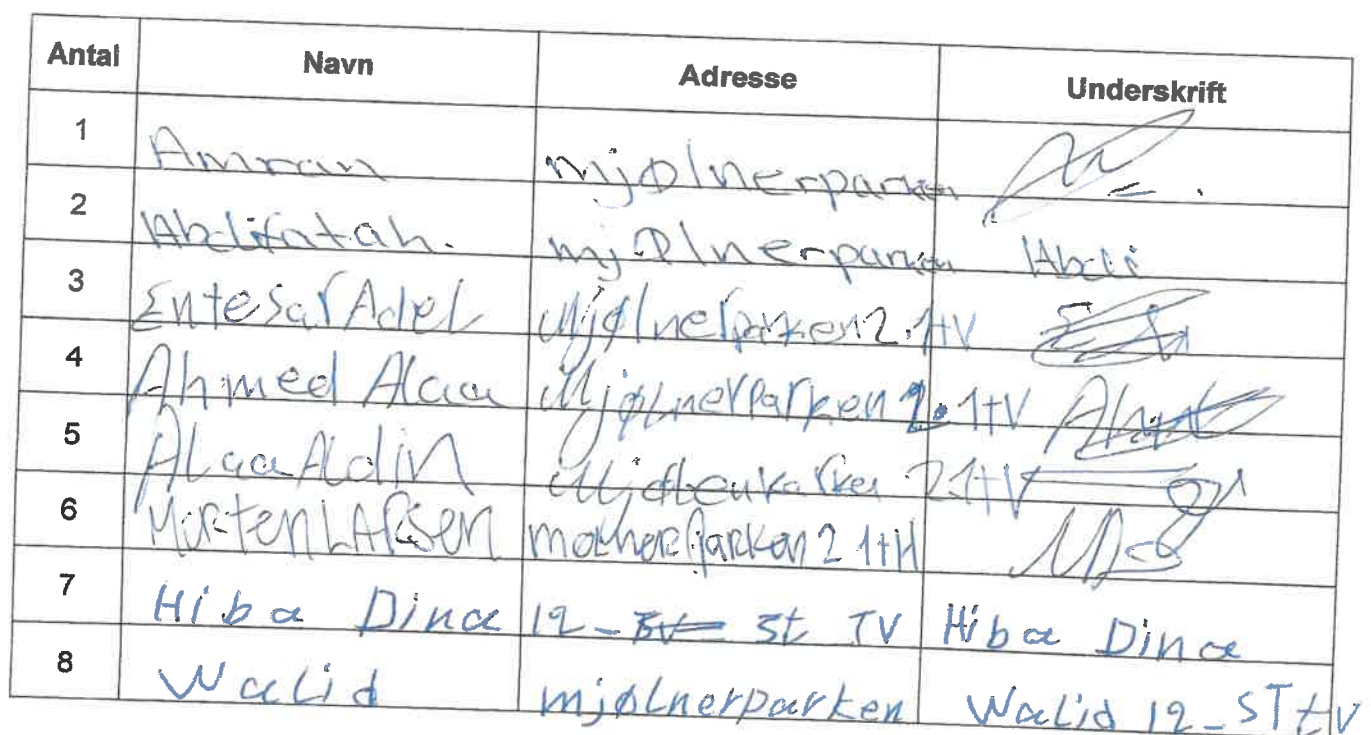 Antal Navn Adresse Underskrift
1 Amran mjølnerparken
2 Abdifatah. mjølnerparken Abdi
3 Entesar Adel Mjølnerparken 2.1tV
4 Ahmed Alaa Mjølnerparken 2.1tV
5 Alaa Aldin 21tV
6 Morten LARSEN 2 1tH
7 Hiba Dina 12 - st TV Hiba Dina
8 Walid mjølnerparken Walid 12 - ST tV